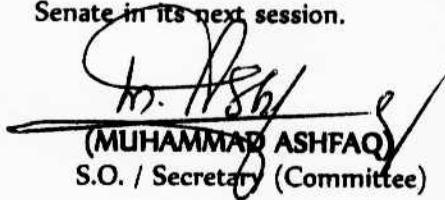 Senate in its next session.
(MUHAMMAD ASHFAQ)
S.O. / Secretary (Committee)